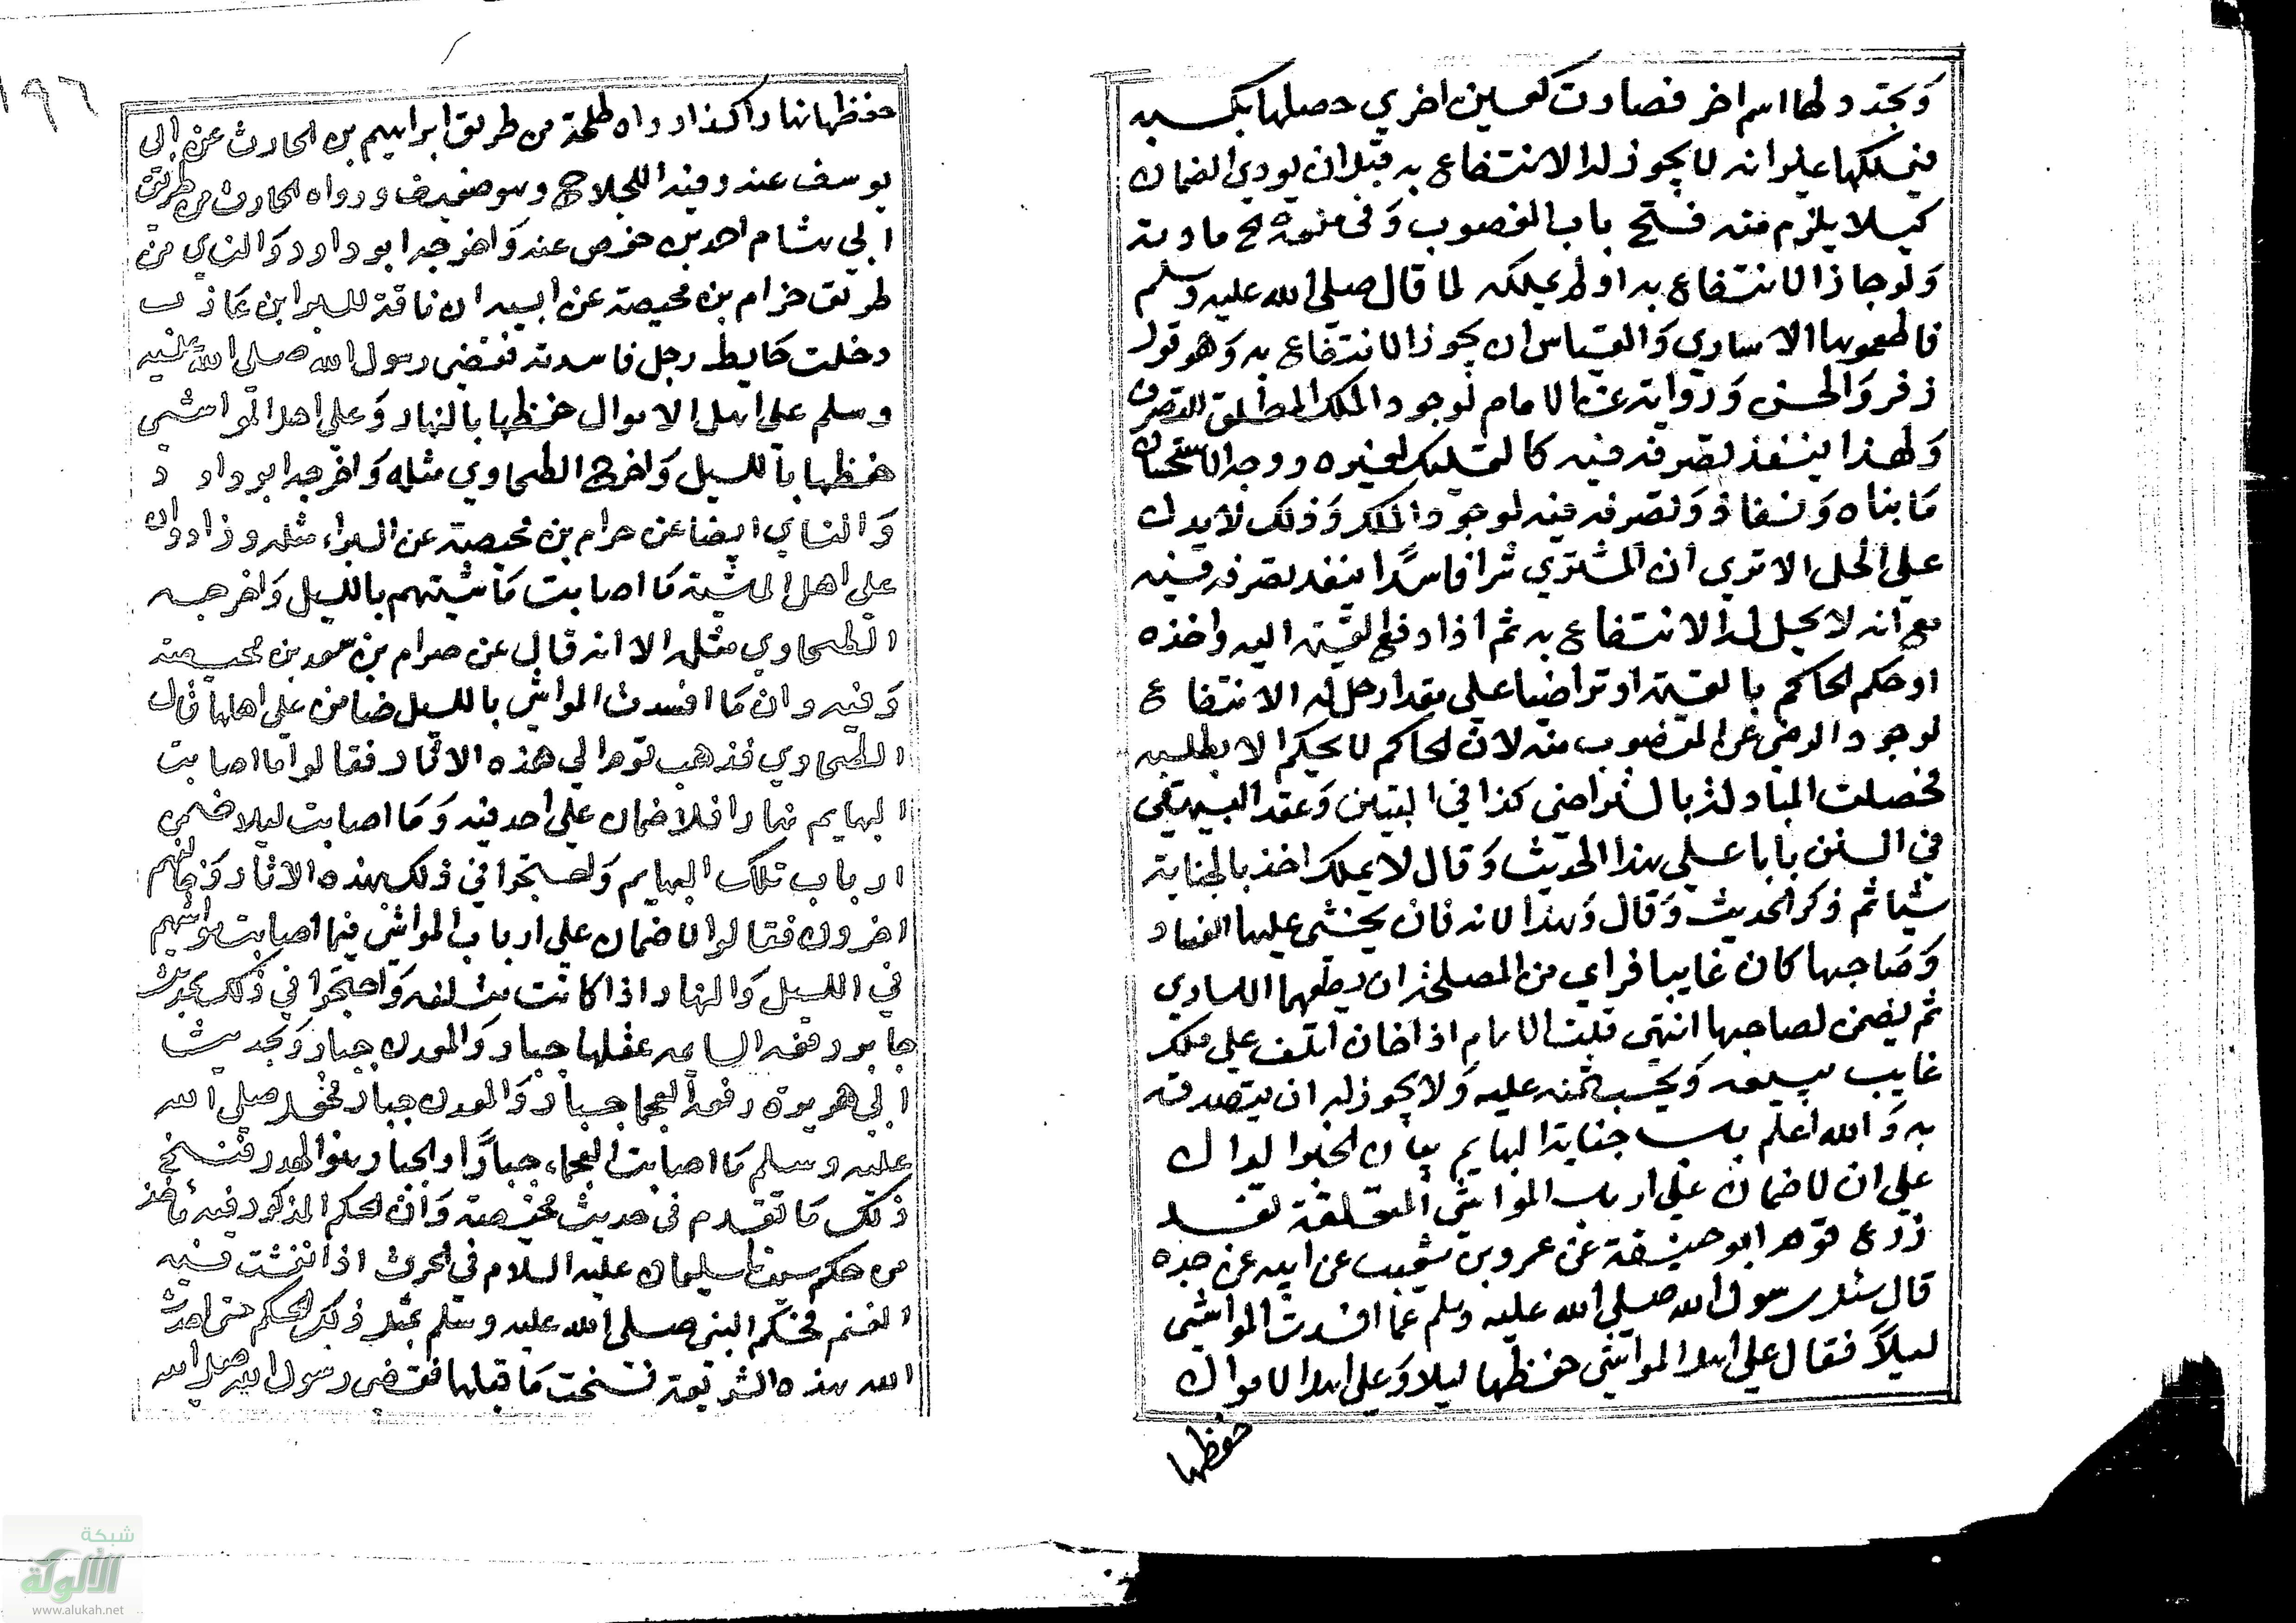 وتجدد لها اسم اخر فصارت كعين اخري حصلها بكسبه
فيملكها غير انه لا يجوز له الانتفاع به قبل ان يودي الضمان
كيلا يلزم منه فتح باب الغصوب وفي منعه حسم مادته
ولو جاز الانتفاع به او لم يملكه لما قال صلي الله عليه وسلم
فاطعموها الاساري والقياس ان يجوز الانتفاع به وهو قول
زفر والحسن ورواية عن الامام لوجود الملك المطلق للتصرف
ولهذا ينفذ تصرفه فيه كالتمليك لغيره ووجه الاستحسان
ما بيناه ونفاذ وتصرفه فيه لوجود الملك وذلك لا يدل
علي الحل الا تري ان المشتري شرا فاسدا ينفد تصرفه فيه
مع انه لا يحل له الانتفاع به ثم اذا دفع القيمة اليه واخذه
او حكم الحاكم بالقيمة او تراضيا علي مقدار حل له الانتفاع
لوجود الرضي من المغضوب منه لان الحاكم لا يحكم الا بطلبه
فحصلت المبادلة بالتراضي كذا في التبيين وعقد البيهقي
في السنن بابا علي هذا الحديث وقال لا يملك احد بالجناية
شيا ثم ذكر الحديث وقال وهذا لانه كان يخشي عليها الفساد
وصاحبها كان غايبا فراي من المصلحة ان يطعمها الاساري
ثم يضمن لصاحبها انتهي قلت الامام اذا خاف التلف علي ملك
غايب يبيعه ويحسب ثمنه عليه ولا يجوز له ان يتصدق
به والله اعلم باب جناية البهايم بيان الخبر الدال
علي ان لا ضمان علي ارباب المواشي المتعلقة بفسد
زرع قوم ابو حنيفة عن عمرو بن شعيب عن ابيه عن جده
قال سئل رسول الله صلي الله عليه وسلم عما افسدت المواشي
ليلا فقال علي اهل المواشي حفظها ليلا وعلي اهل الاموال
حفظها
١٩٦
حفظها نهارا كذا رواه طلحة من طريق ابراهيم بن الحارث عن ابي
يوسف عنه وفيه اللجلاج وهو ضعيف ورواه الحارث من طريق
ابي هشام احمد بن حفص عنه واخرجه ابو داود والنساي من
طريق حزام بن محيصة عن ابيه ان ناقة للبرا بن عازب
دخلت حايط رجل فافسدته فقضي رسول الله صلي الله عليه
وسلم علي اهل الاموال حفظها بالنهار وعلي اهل المواشي
حفظها بالليل واخرج الطحاوي مثله واخرجه ابو داود
والنساي ايضا عن حرام بن محيصة عن البراء مثله وزاد وان
علي اهل الماشية ما اصابت ماشيتهم بالليل واخرجه
الطحاوي مثله الا انه قال عن حرام بن سعد بن محيصة
وفيه وان ما افسدت المواشي بالليل ضامن علي اهلها قال
الطحاوي فذهب قوم الي هذه الاثار فقالوا ما اصابت
البهايم نهارا فلا ضمان علي احد فيه وما اصابت ليلا ضمن
ارباب تلك البهايم واحتجوا في ذلك بهذه الاثار وخالفهم
اخرون فقالوا لا ضمان علي ارباب المواشي فيما اصابت مواشيهم
في الليل والنهار اذا كانت منفلتة واحتجوا في ذلك بحديث
جابر رفعه السايمة عقلها جبار والمعدن جبار وبحديث
ابي هريرة رفعه العجما جبار والمعدن جبار فجعل صلي الله
عليه وسلم ما اصابت العجماء جبارا والجبار هو الهدر فنسخ
ذلك ما تقدم في حديث محيصة وان الحكم المذكور فيه ماخذ
من حكم سليمان عليه السلام في الحرث اذا نفشت فيه
الغنم فحكم النبي صلي الله عليه وسلم بمثل ذلك الحكم حتي احدث
الله هذه الشريعة فنسخت ما قبلها فقضي رسول الله صلي الله
شبكة
الألوكة
www.alukah.net